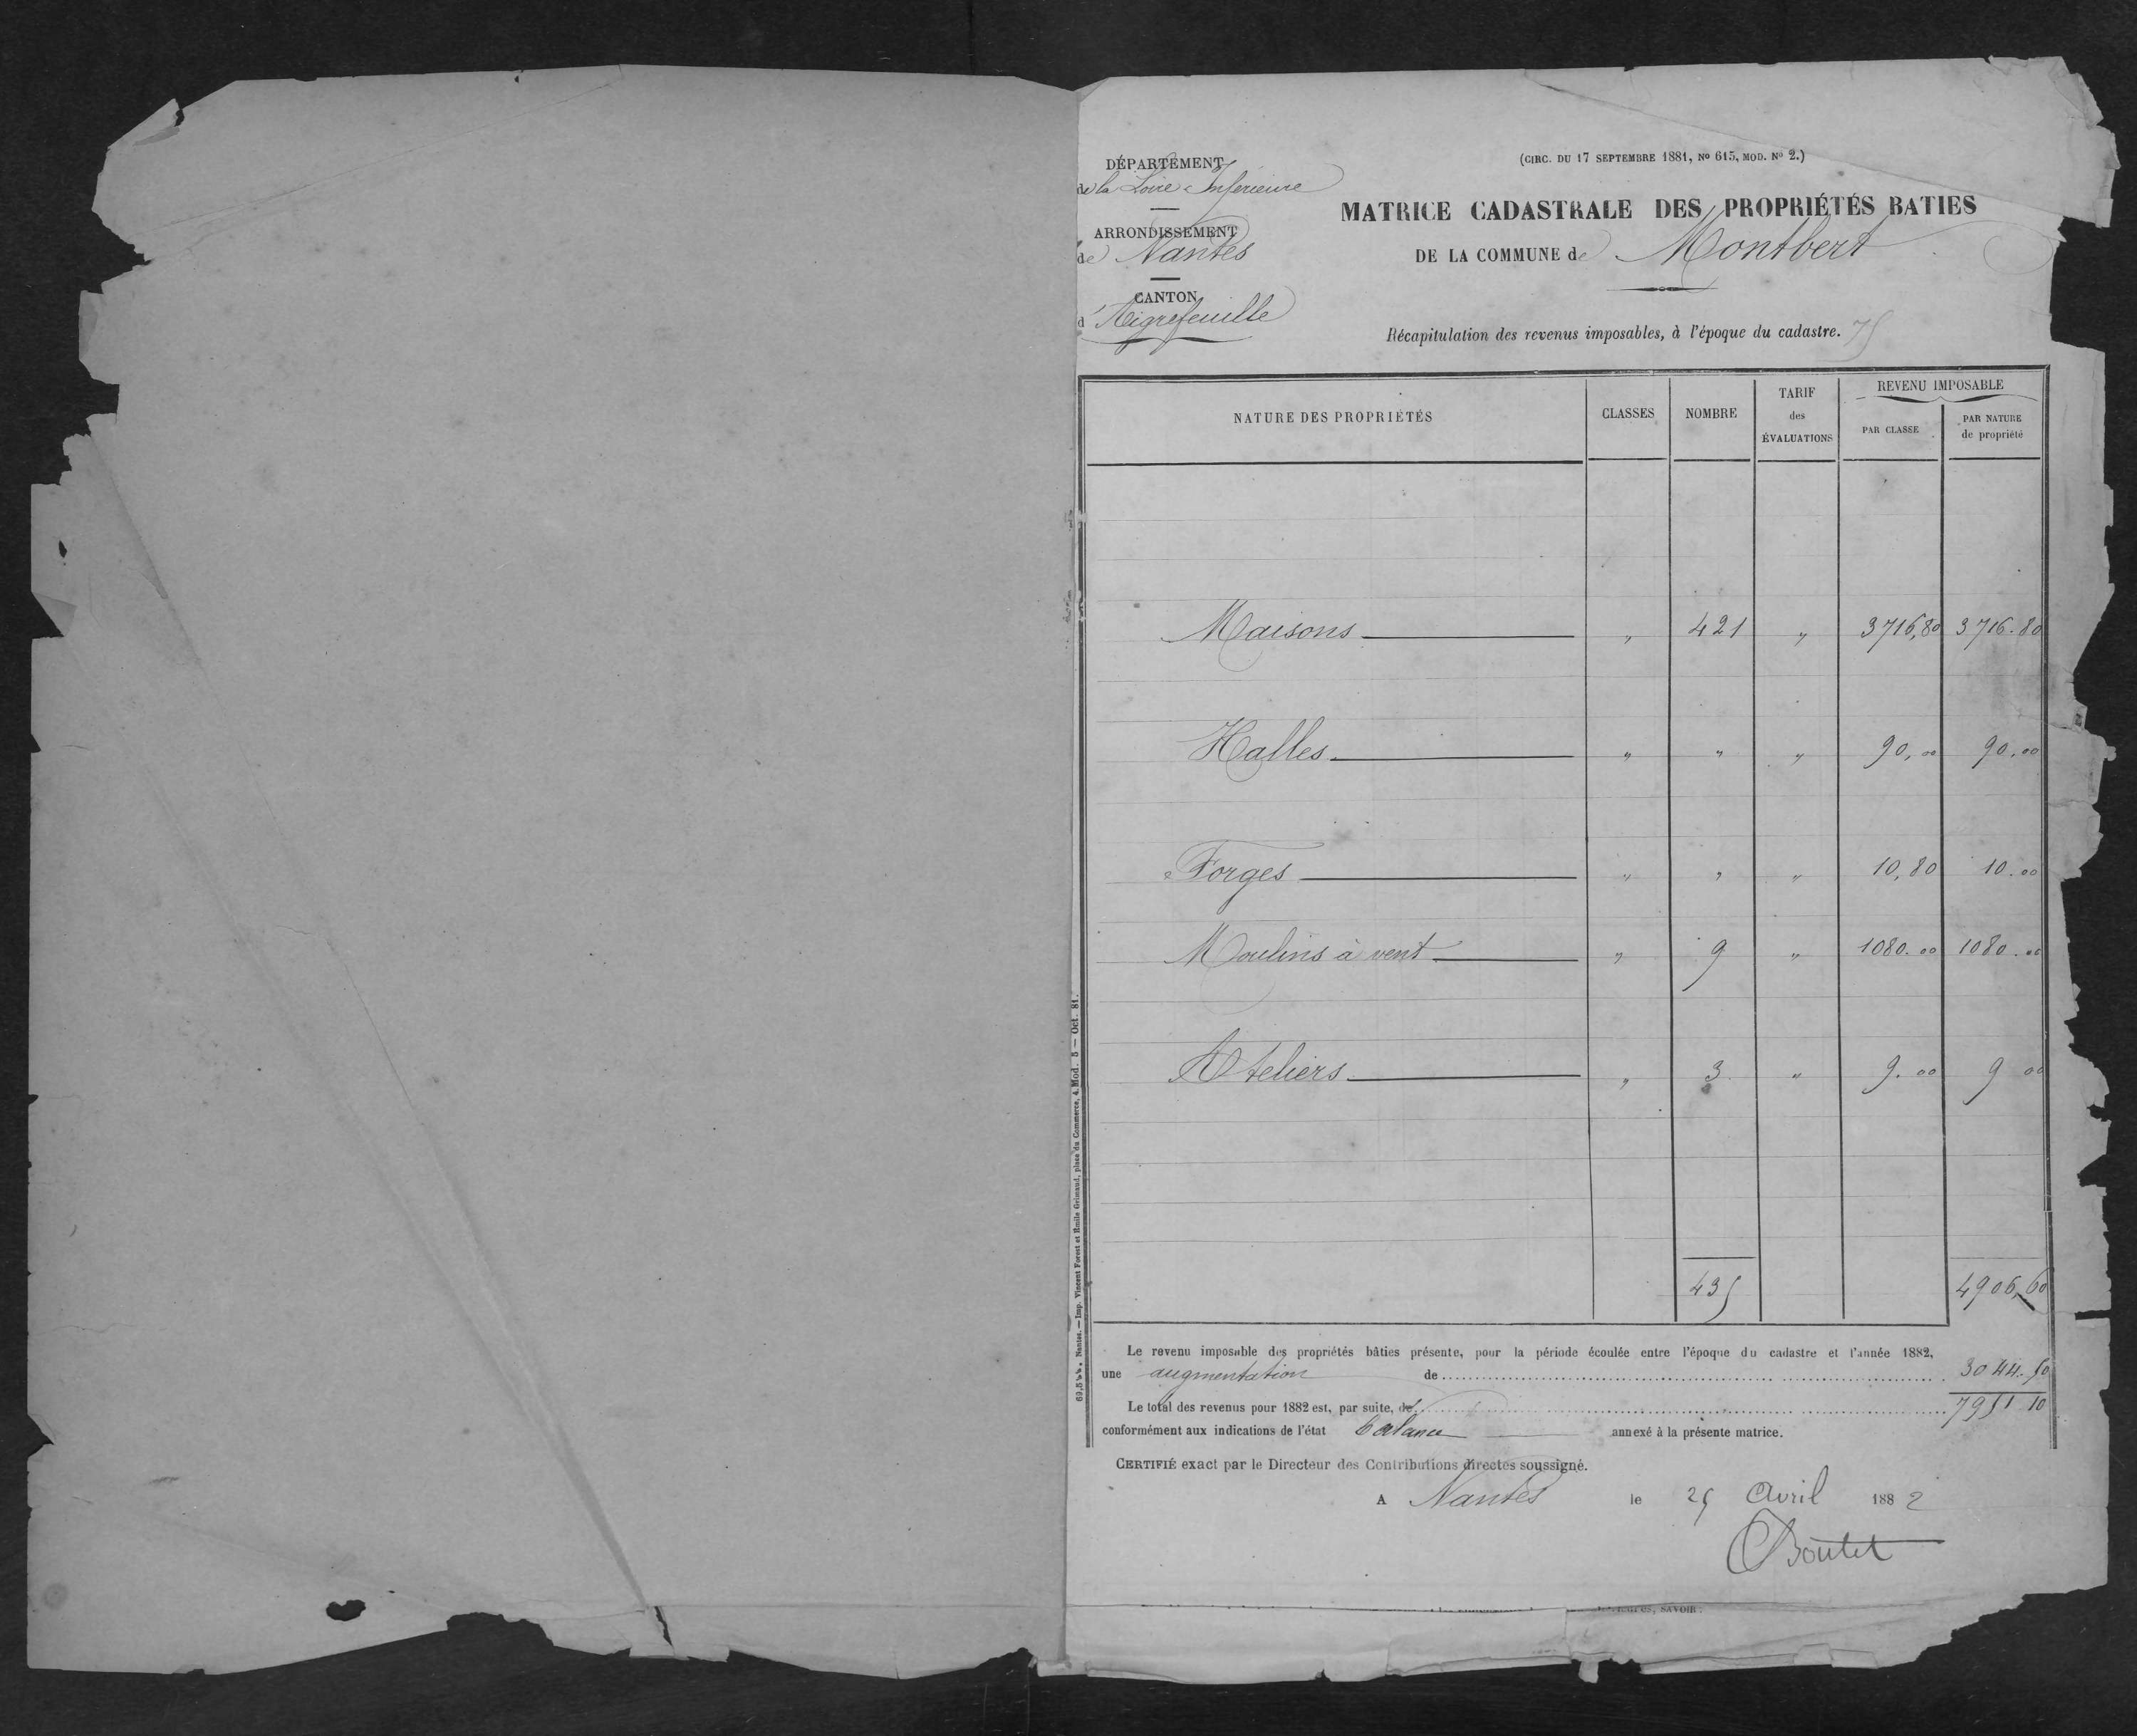 DÉPARTEMENT
de la Loire-Inférieure
ARRONDISSEMENT
de Nantes
CANTON
d'Aigrefeuille
(CIRC. DU 17 SEPTEMBRE 1881, No 615, MOD. No 2.)
MATRICE CADASTRALE DES PROPRIÉTÉS BATIES
DE LA COMMUNE de Montbert
Récapitulation des revenus imposables, à l'époque du cadastre. 75
NATURE DES PROPRIÉTÉS CLASSES NOMBRE TARIF des ÉVALUATIONS REVENU IMPOSABLE PAR CLASSE PAR NATURE de propriété
Maisons " 421 " 3716,80 3716.80
Halles " " " 90,00 90.00
Forges " " " 10,80 10.00
Moulins à vent " 9 " 1080.00 1080.00
Ateliers " 3 " 9.00 9 00
435 4906,60
Le revenu imposable des propriétés bâties présente, pour la période écoulée entre l'époque du cadastre et l'année 1882,
une augmentation de 3044.50
Le total des revenus pour 1882 est, par suite, de 7951 10
conformément aux indications de l'état balance annexé à la présente matrice.
CERTIFIÉ exact par le Directeur des Contributions directes soussigné.
A Nantes le 25 Avril 1882
Boutet
Nantes. — Imp. Vincent Forest et Émile Grimaud, place du Commerce, 4. Mod. 5 — Oct. 81.
SAVOIR :